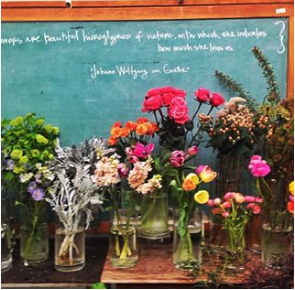 are beautiful hieroglyphics of nature, with which she indicates
how much she loves us.
Johann Wolfgang von Goethe